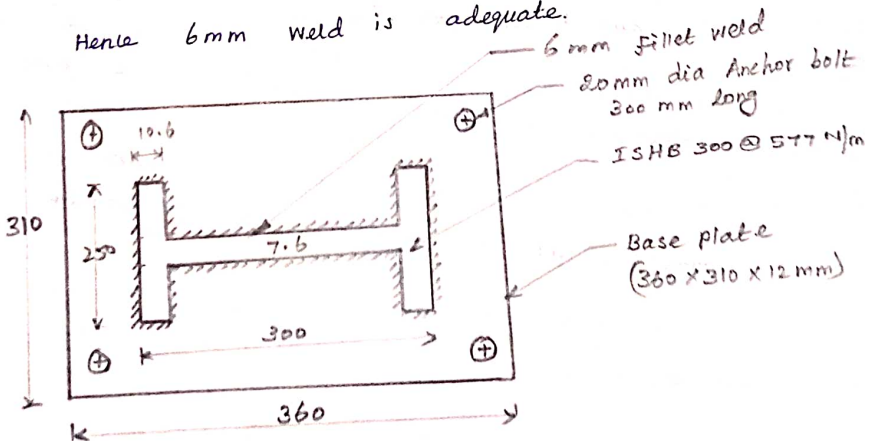 Hence 6mm weld is adequate.
6 mm fillet weld
20mm dia Anchor bolt
300 mm long
ISHB 300 @ 577 N/m
Base plate
(360 X 310 X 12 mm)
10.6
310
250
7.6
300
360